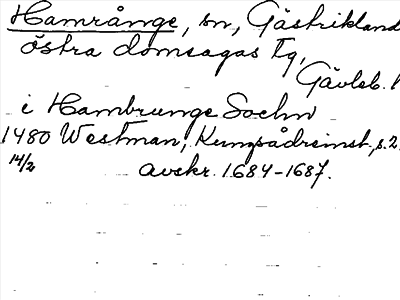 Hamrånge, sn, Gästrikland
östra domsagas tg,
Gävleb. l
i Hambrunge Sochn
1480 Westman, Kungsådreinst., s. 2
14/2 avskr. 1684-1687.